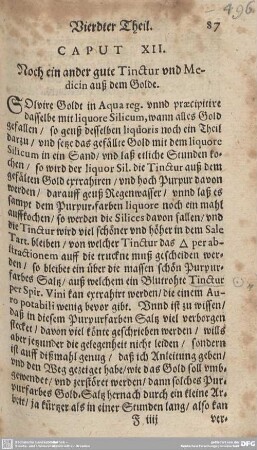 496
Vierdter Theil. 87
CAPUT XII.
Noch ein ander gute Tinctur vnd Me-
dicin auß dem Golde.
SOlvire Golde in Aqua reg. vnnd præcipitire
dasselbe mit liquore Silicum, wann alles Gold
gefallen / so geuß desselben liquoris noch ein Theil
darzu / vnd setze das gefälte Gold mit dem liquore
Silicum in ein Sand / vnd laß etliche Stunden ko-
chen / so wird der liquor Sil. die Tinctur auß dem
gefälten Gold extrahiren / vnd hoch Purpur davon
werden / darauff geuß Regenwasser / vnnd laß es
sampt dem Purpur-farben liquore noch ein mahl
auffkochen / so werden die Silices davon fallen / vnd
die Tinctur wird viel schöner vnd höher in dem Sale
Tart. bleiben / von welcher Tinctur das △ per ab-
stractionem auff die truckne muß gescheiden wer-
den / so bleibet ein über die massen schön Purpur-
farbes Saltz / auß welchem ein Blutrohte Tinctur
per Spir. Vini kan extrahirt werden / die einem Au-
ro potabili wenig bevor gibt. Vnnd ist zu wissen /
daß in diesem Purpurfarben Saltz viel verborgen
stecket / davon viel könte geschrieben werden / wills
aber jetzunder die gelegenheit nicht leiden / sondern
ist auff dißmahl genug / daß ich Anleitung geben /
vnd den Weg gezeiget habe / wie das Gold soll vmb-
gewendet / vnd zerstöret werden / dann solches Pur-
purfarbes Gold-Saltz hernach durch ein kleine Ar-
beit / ja kürtzer als in einer Stunden lang / also kan
F iiij ver-